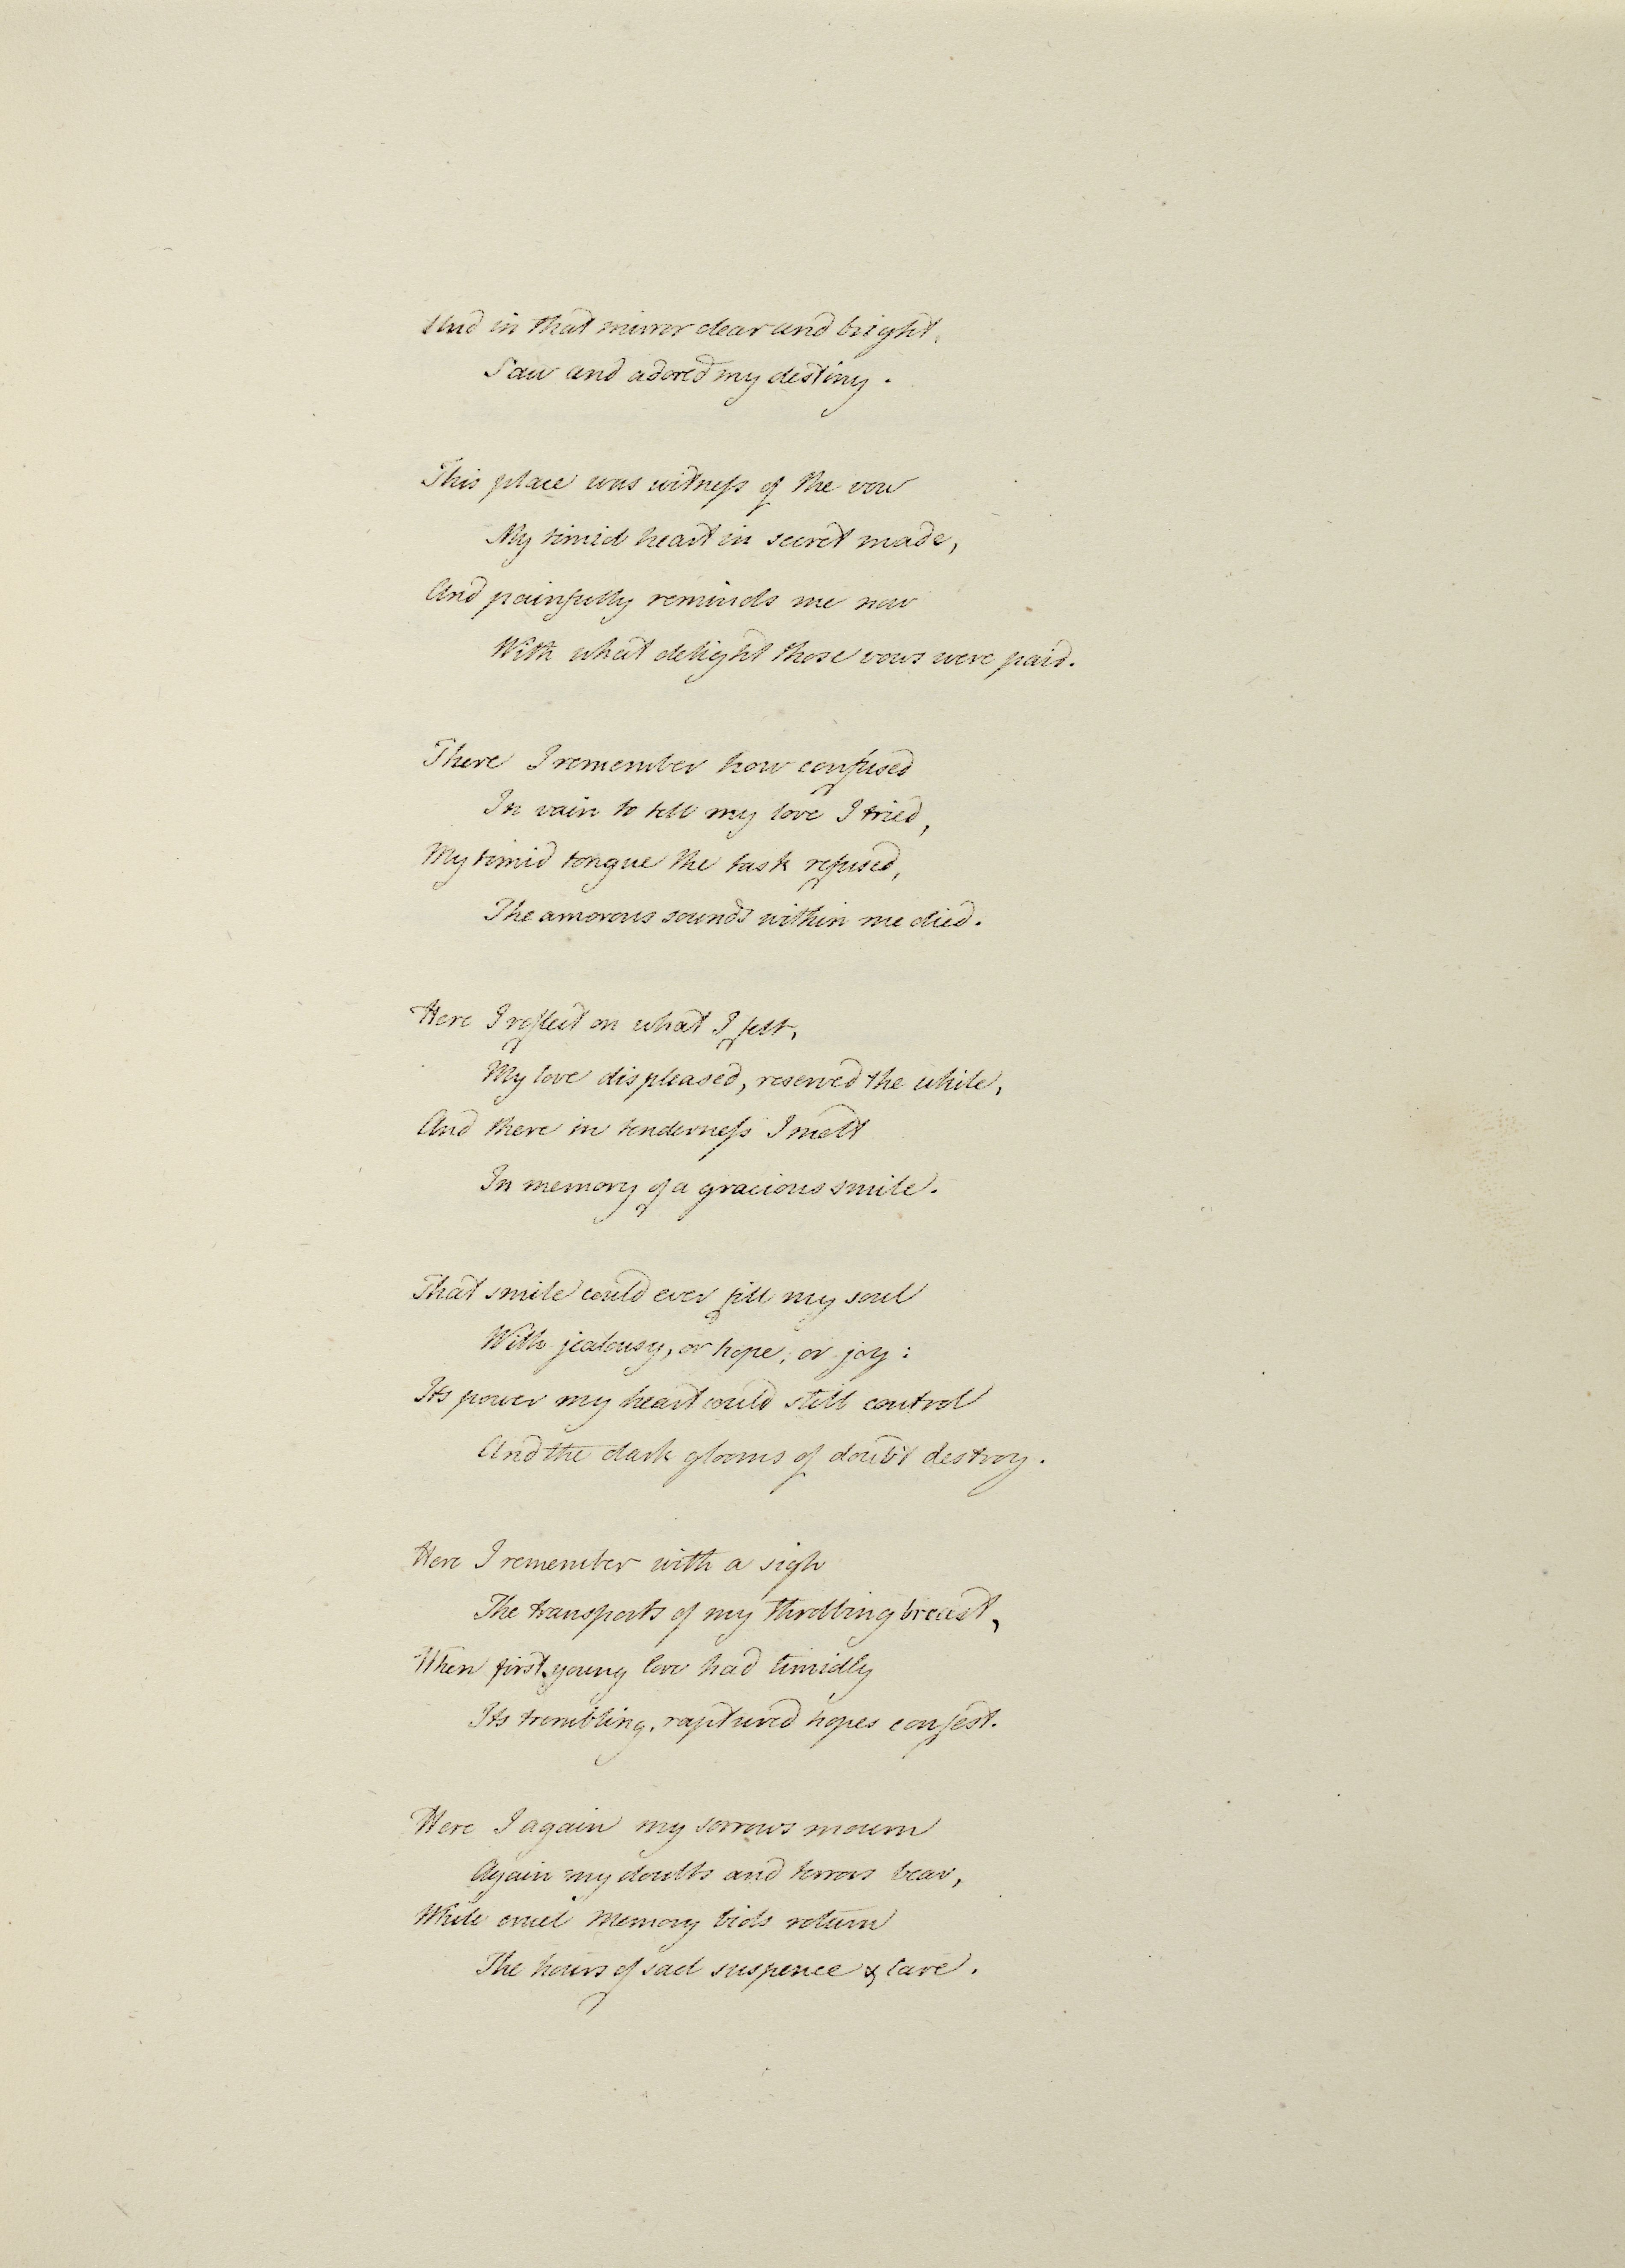 And in that mirror clear and bright,
Saw and adored my destiny.
This place was witneſs of the vow
My timid heart in secret made,
And painfully reminds me now
With what delight those vows were paid.
There I remember how confused
In vain to tell my love I tried,
My timid tongue the task refused,
The amorous sounds within me died.
Here I reflect on what I felt,
My love displeased, reserved the while,
And there in tenderneſs I melt
In memory of a gracious smile.
That smile could ever fill my soul
With jealousy, or hope, or joy:
Its power my heart could still control
And the dark glooms of doubt destroy.
Here I remember with a sigh
The transports of my throbbing breast,
When first young love had timidly
Its trembling, raptured hopes confest.
Here I again my sorrows mourn
Again my doubts and terrors bear,
While cruel Memory bids return
The hours of sad suspence & care.